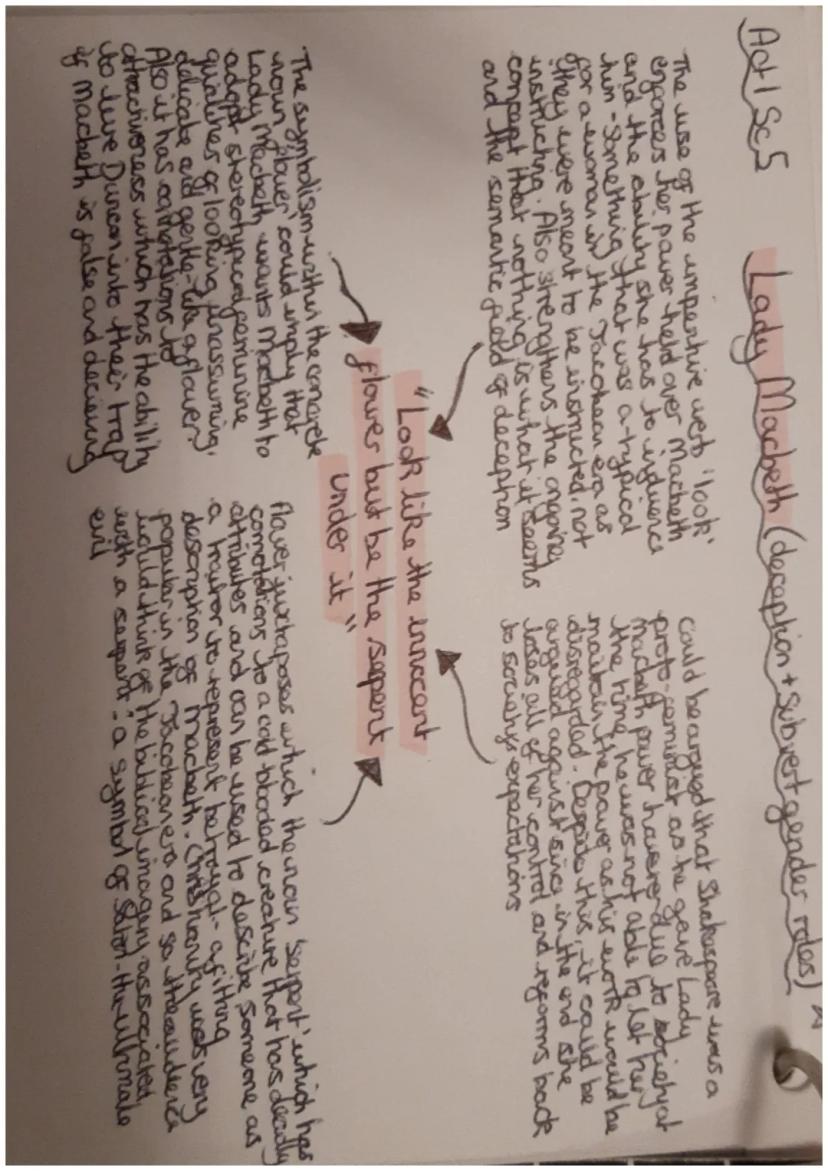 Act 1 Sc5 Lady Macbeth (deception + Subvert gender roles)
The use of the imperitive verb 'look'
enforces her power held over Macbeth
and the ability she has to influence
him - Something that was a-typical
for a woman in the Jacobean era as
they were meant to be instructed, not
instructing. Also strengthens the ongoing
concept that 'nothing is what it seems'
and the semantic field of deception
Could be argued that Shakespeare was a
proto-feminist as he gave Lady
Macbeth power however due to society at
the time, he was not able to let her
maintain the power as his work would be
disregarded. Despite this, it could be
argued against since in the end she
loses all of her control and reforms back
to society's expectations
"Look like the innocent
flower but be the serpent
under it"
The symbolism within the concrete
noun 'flower' could imply that
Lady Macbeth wants Macbeth to
adopt stereotypical feminine
qualities of looking unassuming,
delicate and gentle-like a flower.
Also it has connotations to
attractiveness which has the ability
to lure Duncan into their trap
if Macbeth is false and decieving
flower juxtaposes which the noun 'serpent' which has
connotations to a cold blooded creature that has deadly
attributes and can be used to describe someone as
a traitor to represent betrayal - a fitting
description of Macbeth. Christianity was very
popular in the Jacobean era and so the audience
would think of the biblical imagery associated
with a serpent - a symbol of Satan - the ultimate
evil